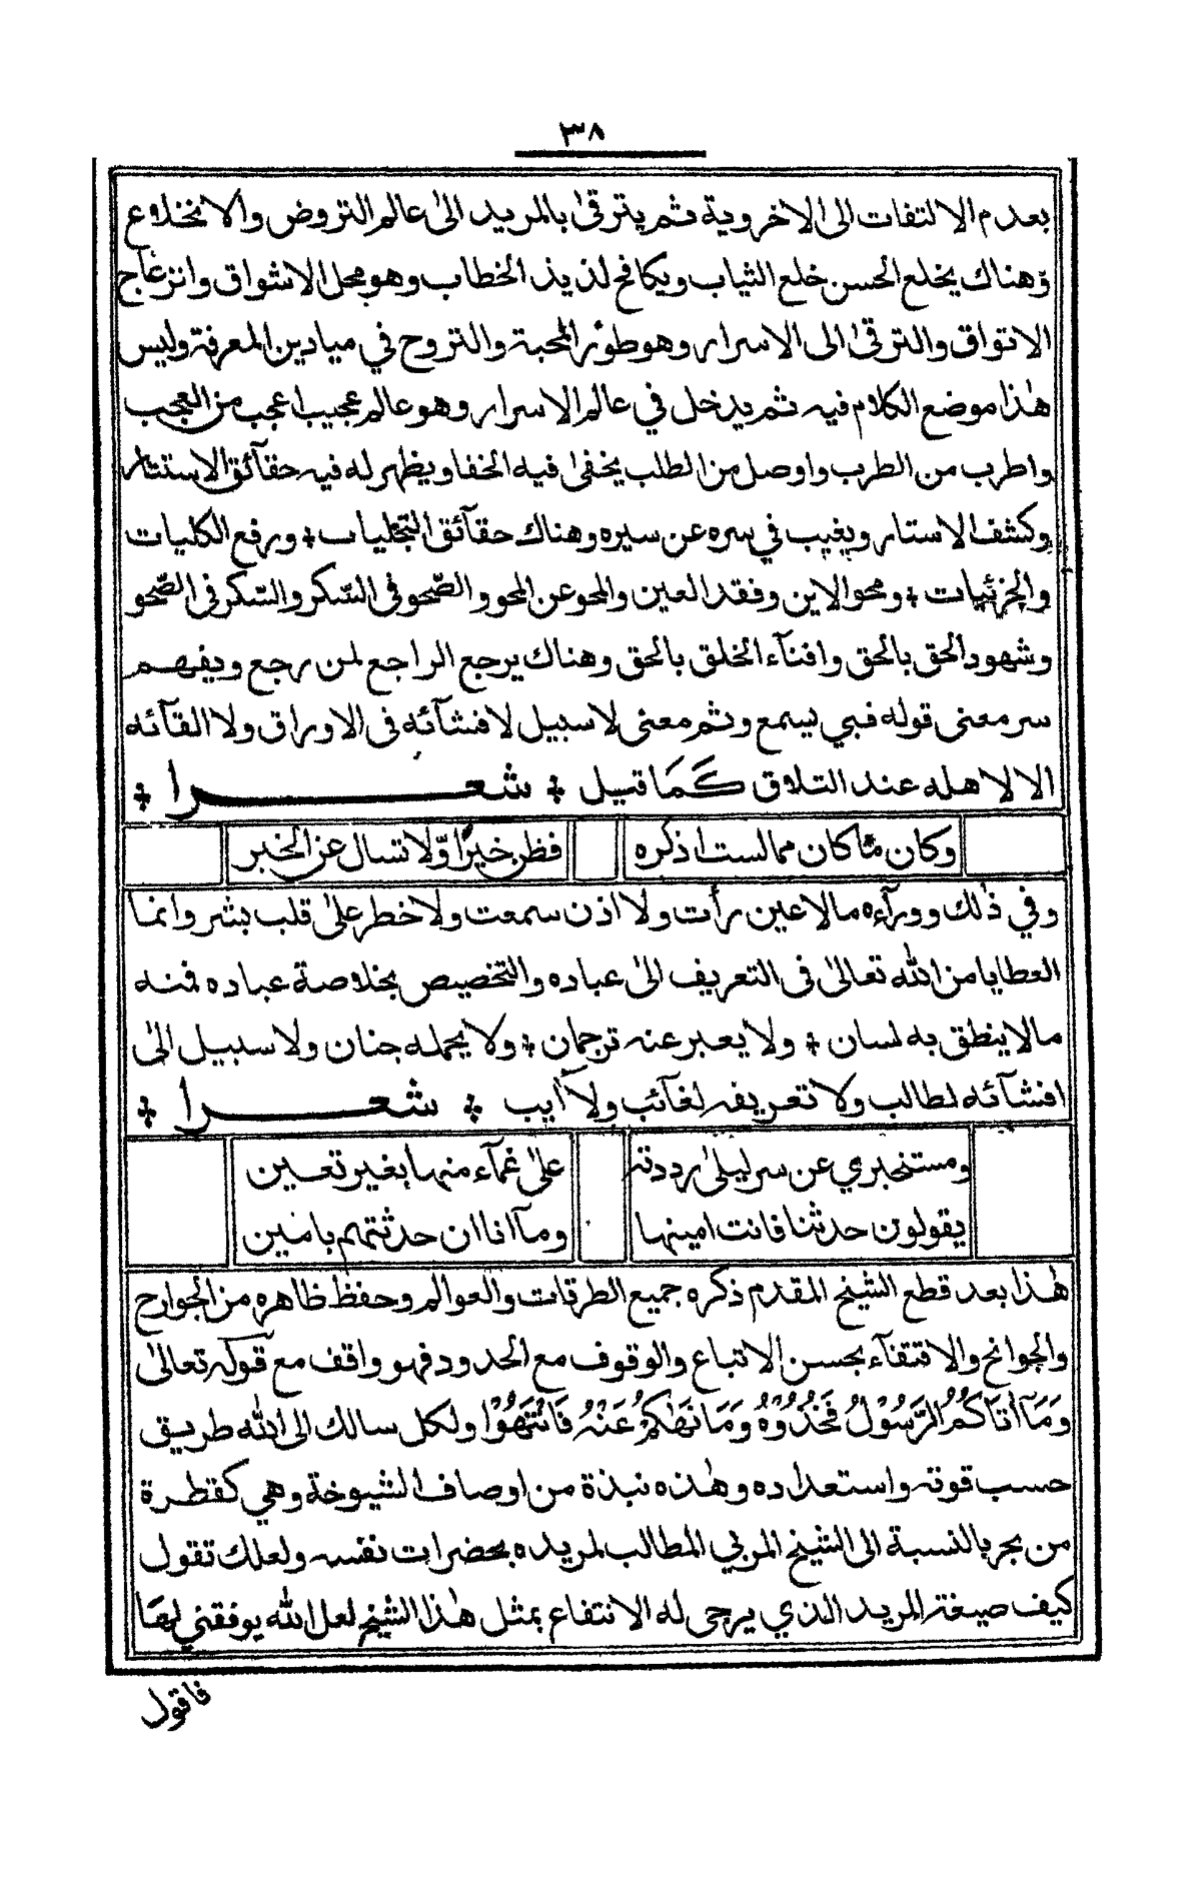 ٣٨
بعدم الالتفات الى الاخروية ثم يترقىٰ بالمريد الىٰ عالم التروض والانخلاع
وهناك يخلع الحسن خلع الثياب ويكافح لذيذ الخطاب وهو محل الاشواق وانزعاج
الاتواق والترقىٰ الى الاسرار وهو طور المحبة والتروح في ميادين المعرفة وليس
هٰذا موضع الكلام فيه ثم يدخل في عالم الاسرار وهو عالم عجيب اعجب من العجب
واطرب من الطرب واوصل من الطلب يخفىٰ فيه الخفا ويظهر له فيه حقآئق الاستتار
وكشف الاستار ويغيب في سره عن سيره وهناك حقآئق التجليات ؛ ويرفع الكليات
والجزئيات ؛ ومحو الاين وفقد العين والمحو عن المحو والصّحو فى السّكر والسّكر فى الصّحو
وشهود الحق بالحق وافنآء الخلق بالحق وهناك يرجع الراجع لمن رجع ويفهم
سر معنى قوله فبي يسمع وثم معنى لا سبيل لافشآئه فى الاوراق ولا القآئه
الا لاهله عند التلاق كَمَا قيل ؛ شعـــرا ؛
وكان مّا كان مما لست اذكره فظن خيرًا وّلا تسال عن الخبر
وفي ذٰلك وورآءه مالا عين رأت ولا اذن سمعت ولا خطر علىٰ قلب بشر وانما
العطايا من اللّٰه تعالىٰ فى التعريف الىٰ عباده والتخصيص بخلاصة عباده فمنه
مالا ينطق به لسان ؛ ولا يعبر عنه ترجمان ؛ ولا يحمله جنان ولا سبيل الىٰ
افشآئه لطالب ولا تعريفه لغآئب ولا أيب ؛ شعـــرا ؛
ومستخبري عن سر ليلىٰ رددته علىٰ غمآء منها بغير تعيين
يقولون حدثنا فانت امينها ومآ انا ان حدثتهم بامين
هٰذا بعد قطع الشيخ المقدم ذكره جميع الطرقات والعوالم وحفظ ظاهره من الجوارح
والجوانح والاقتفآء بحسن الاتباع والوقوف مع الحدود فهو واقف مع قوله تعالىٰ
وَمَآ اٰتَاكُمُ الرَّسُوْلُ فَخُذُوْهُ وَمَا نَهٰكُمْ عَنْهُ فَانْتَهُوْا ولكل سالك الى اللّٰه طريق
حسب قوته واستعداده وهٰذه نبذة من اوصاف الشيوخة وهي كقطرة
من بحر بالنسبة الى الشيخ المربي المطالب لمريده بحضرات نفسه ولعلك تقول
كيف صيغة المريد الذي يرجى له الانتفاع بمثل هٰذا الشيخ لعل اللّٰه يوفقني لها
فاقول